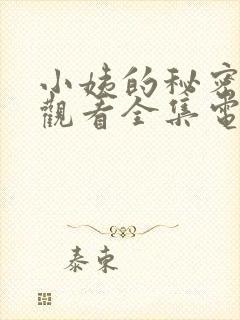 小姨的秘密
觀看全集電
泰東